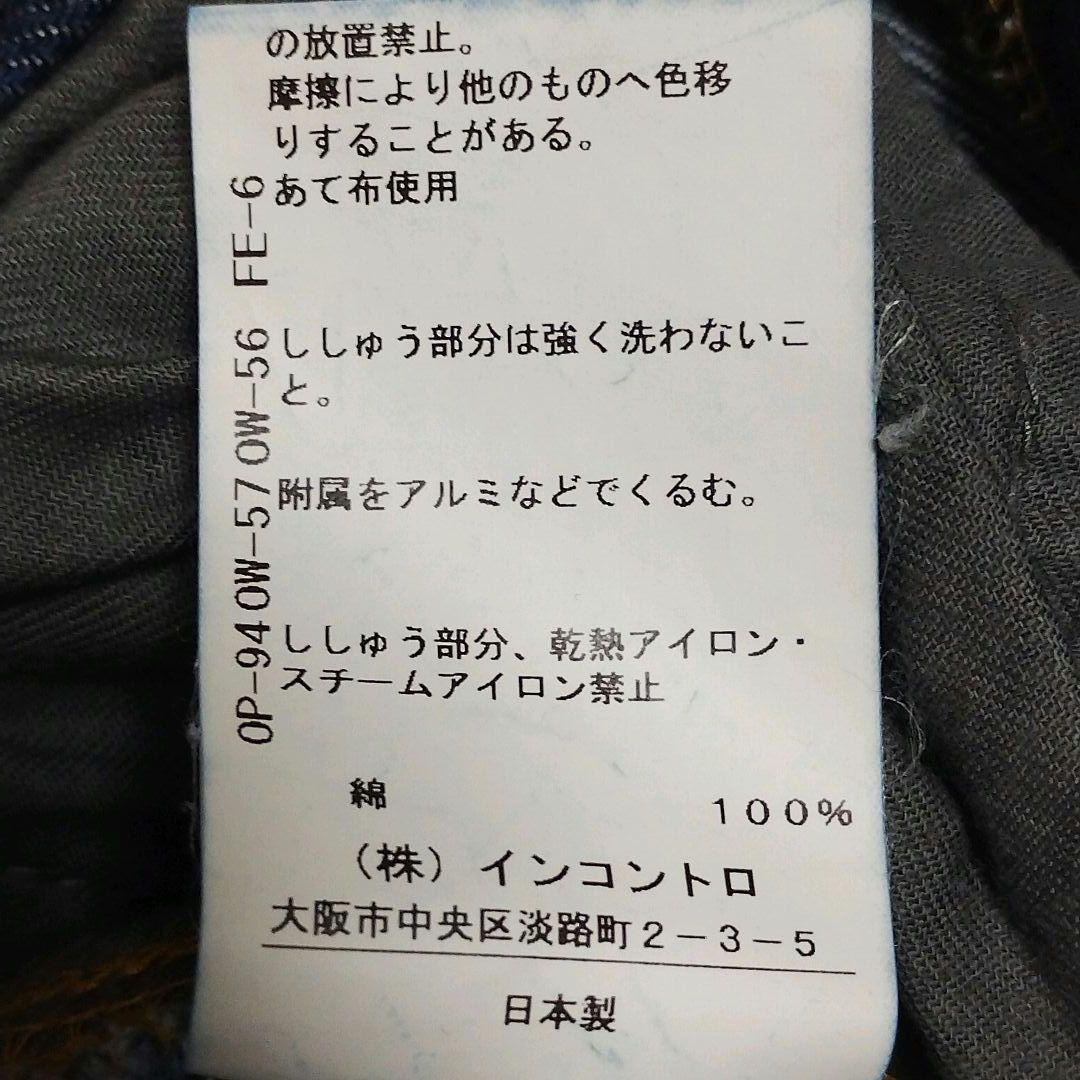 の放置禁止。
摩擦により他のものへ色移
りすることがある。
あて布使用
ししゅう部分は強く洗わないこ
と。
附属をアルミなどでくるむ。
ししゅう部分、乾熱アイロン・
スチームアイロン禁止
OP-94 OW-57 OW-56 FE-6
綿 100%
(株)インコントロ
大阪市中央区淡路町2-3-5
日本製